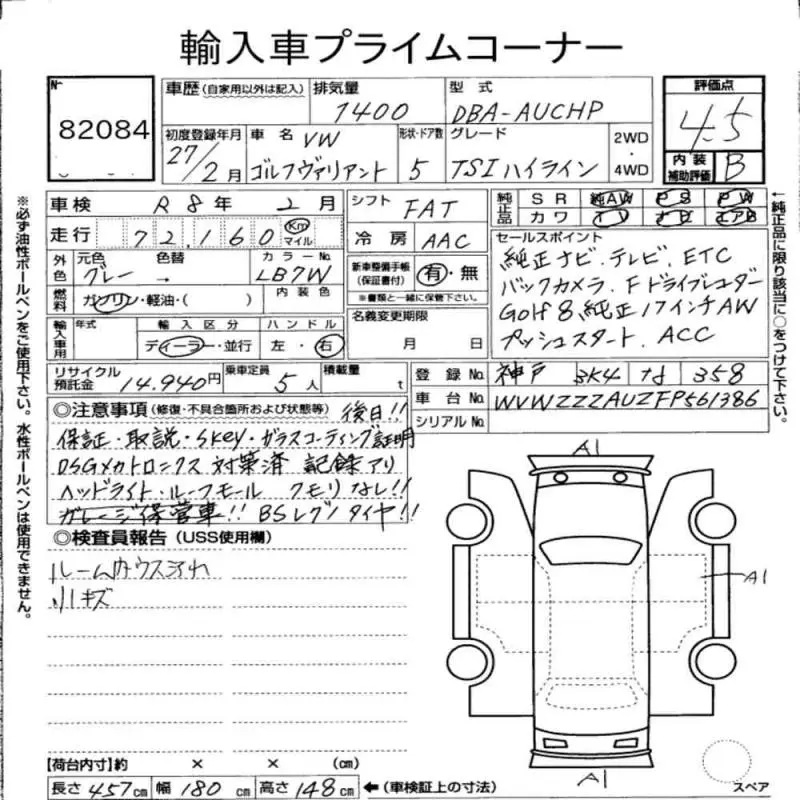 輸入車プライムコーナー
No 82084
車歴 (自家用以外は記入) 排気量 1400 型式 DBA-AUCHP
評価点 4.5
初度登録年月 27/2月 車名 VW ゴルフヴァリアント 形状・ドア数 5 グレード TSIハイライン 2WD・4WD
内装補助評価 B
車検 R8年 2月 シフト FAT
走行 72,160 Km マイル 冷房 AAC
純正品 SR 純AW PS PW
カワ TV ナビ エアB
←純正品に限り該当に○をつけて下さい。
外色 元色 グレー 色替 → カラーNo. LB7W
内装色
燃料 ガソリン・軽油・( )
新車整備手帳(保証書付) 有・無
※書類と一緒に保管下さい。
名義変更期限 月 日
セールスポイント
純正ナビ.テレビ.ETC
バックカメラ.Fドライブレコーダー
Golf8純正17インチAW
プッシュスタート.ACC
輸入車用 年式 輸入区分 ディーラー・並行 ハンドル 左・右
リサイクル預託金 14.940円 乗車定員 5人 積載量 t
登録No. 神戸 3K4 な 358
車台No. WVWZZZAUZFP561386
シリアルNo.
◎注意事項 (修復・不具合箇所および状態等) 後日!!
保証・取説・Skey・ガラスコーティング証明
DSGメカトロニクス 対策済 記録アリ
ヘッドライト・ルーフモール クモリなし!!
ガレージ保管車!! BSレグノタイヤ!!
◎検査員報告 (USS使用欄)
ルーム内ウスヨゴレ
小キズ
A1
A1
A1
スペア
【荷台内寸】約 × × (cm)
長さ 457cm 幅 180cm 高さ 148cm ←(車検証上の寸法)
※必ず油性ボールペンをご使用下さい。水性ボールペンは使用できません。